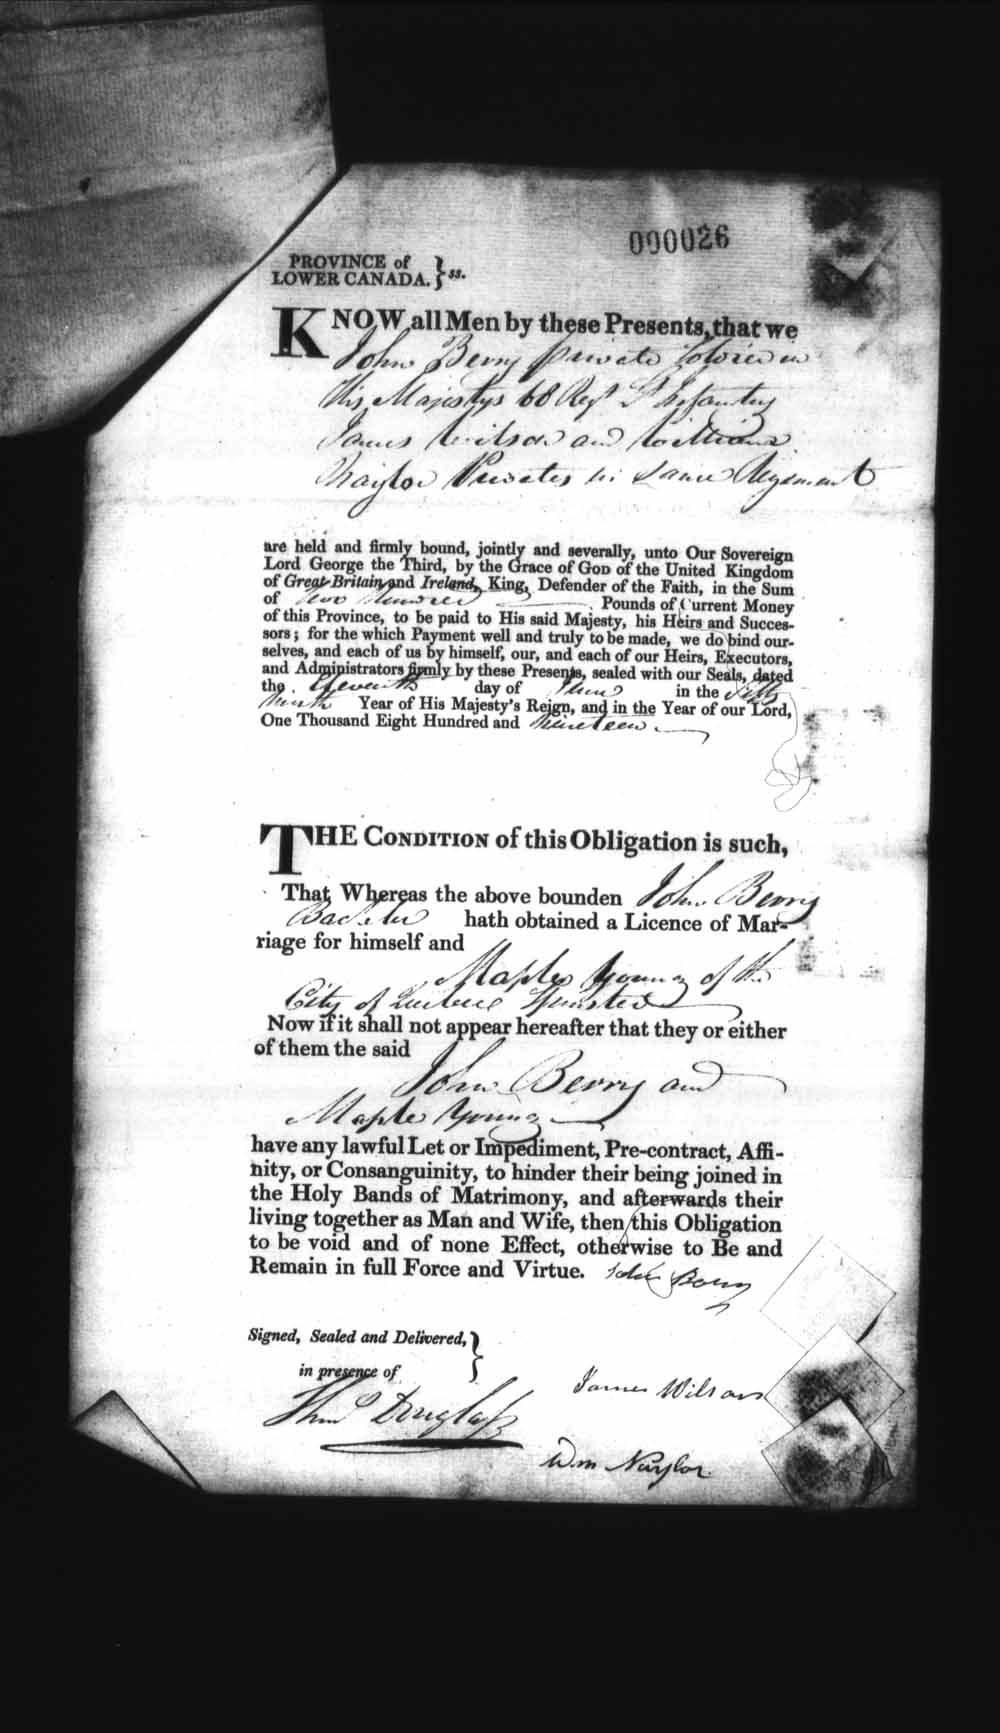 000026
PROVINCE of
LOWER CANADA. } ss.
KNOW all Men by these Presents, that we
John Berry private Soldier in
His Majestys 68 Regt Lt Infantry
James Wilson and William
Naylor Privates in same Regiment
are held and firmly bound, jointly and severally, unto Our Sovereign
Lord George the Third, by the Grace of GOD of the United Kingdom
of Great-Britain and Ireland, King, Defender of the Faith, in the Sum
of Two Hundred Pounds of Current Money
of this Province, to be paid to His said Majesty, his Heirs and Succes-
sors; for the which Payment well and truly to be made, we do bind our-
selves, and each of us by himself, our, and each of our Heirs, Executors,
and Administrators firmly by these Presents, sealed with our Seals, dated
the Eleventh day of June in the Fifty
Ninth Year of His Majesty's Reign, and in the Year of our Lord,
One Thousand Eight Hundred and Nineteen
THE CONDITION of this Obligation is such,
That Whereas the above bounden John Berry
Bachelor hath obtained a Licence of Mar-
riage for himself and
Maple Young of the
City of Quebec Spinster
Now if it shall not appear hereafter that they or either
of them the said
John Berry and
Maple Young
have any lawful Let or Impediment, Pre-contract, Affi-
nity, or Consanguinity, to hinder their being joined in
the Holy Bands of Matrimony, and afterwards their
living together as Man and Wife, then this Obligation
to be void and of none Effect, otherwise to Be and
Remain in full Force and Virtue. John Berry
Signed, Sealed and Delivered, }
in presence of
James Wilson
Thos Douglass
Wm Naylor